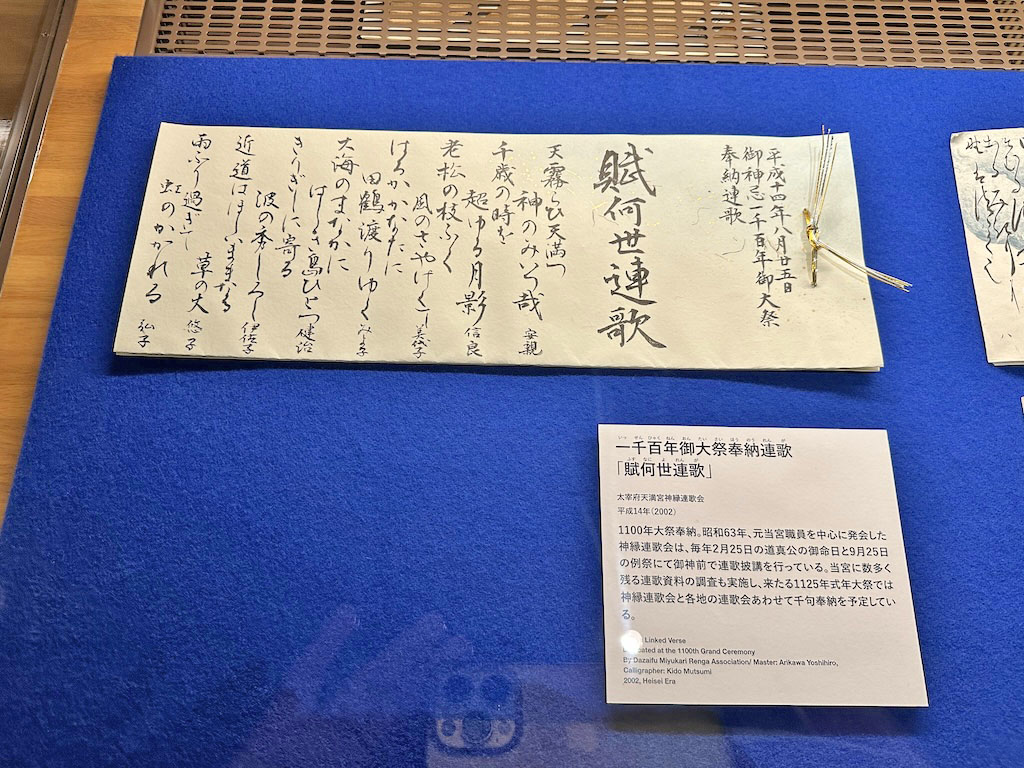 平成十四年八月廿五日
御神忌一千百年御大祭
奉納連歌
賦何世連歌
天霧らひ天満つ
神のみいつ哉 安親
千歳の時を
超ゆる月影 信良
老松の枝ふく
風のさやけくし 美代子
はるかかなたに
田鶴渡りゆく
大海のまなかに
はしき島ひとつ 健治
きりぎしに寄る
波の秀しろし 伊佐子
近道はほしいままなる
草の丈 悠子
雨ふり過ぎて
虹のかかれる 弘子
いっせんひゃくねんおんたいさいほうのうれんが
一千百年御大祭奉納連歌
ふすなによれんが
「賦何世連歌」
太宰府天満宮神縁連歌会
平成14年(2002)
1100年大祭奉納。昭和63年、元当宮職員を中心に発会した
神縁連歌会は、毎年2月25日の道真公の御命日と9月25日
の例祭にて御神前で連歌披講を行っている。当宮に数多く
残る連歌資料の調査も実施し、来たる1125年式年大祭では
神縁連歌会と各地の連歌会あわせて千句奉納を予定してい
る。
Linked Verse
at the 1100th Grand Ceremony
By Dazaifu Miyukari Renga Association/ Master: Arikawa Yoshihiro,
Calligrapher: Kido Mutsumi
2002, Heisei Era